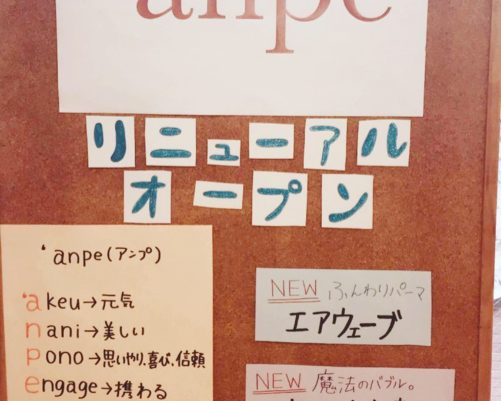 anpe
リニューアル
オープン
'anpe(アンプ)
'akeu→元気
nani→美しい
pono→思いやり、喜び、信頼
engage→携わる
NEW ふんわりパーマ
エアウェーブ
NEW 魔法のバブル。